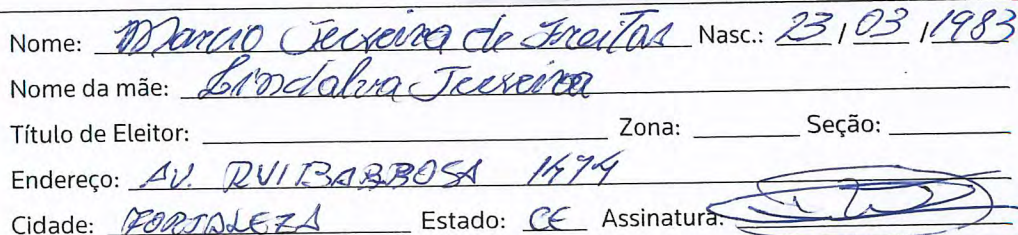 Nome: Marcio Teixeira de Freitas Nasc.: 23/03/1983
Nome da mãe: Lindalva Teixeira
Título de Eleitor: Zona: Seção:
Endereço: AV. RUI BARBOSA 1474
Cidade: FORTALEZA Estado: CE Assinatura: